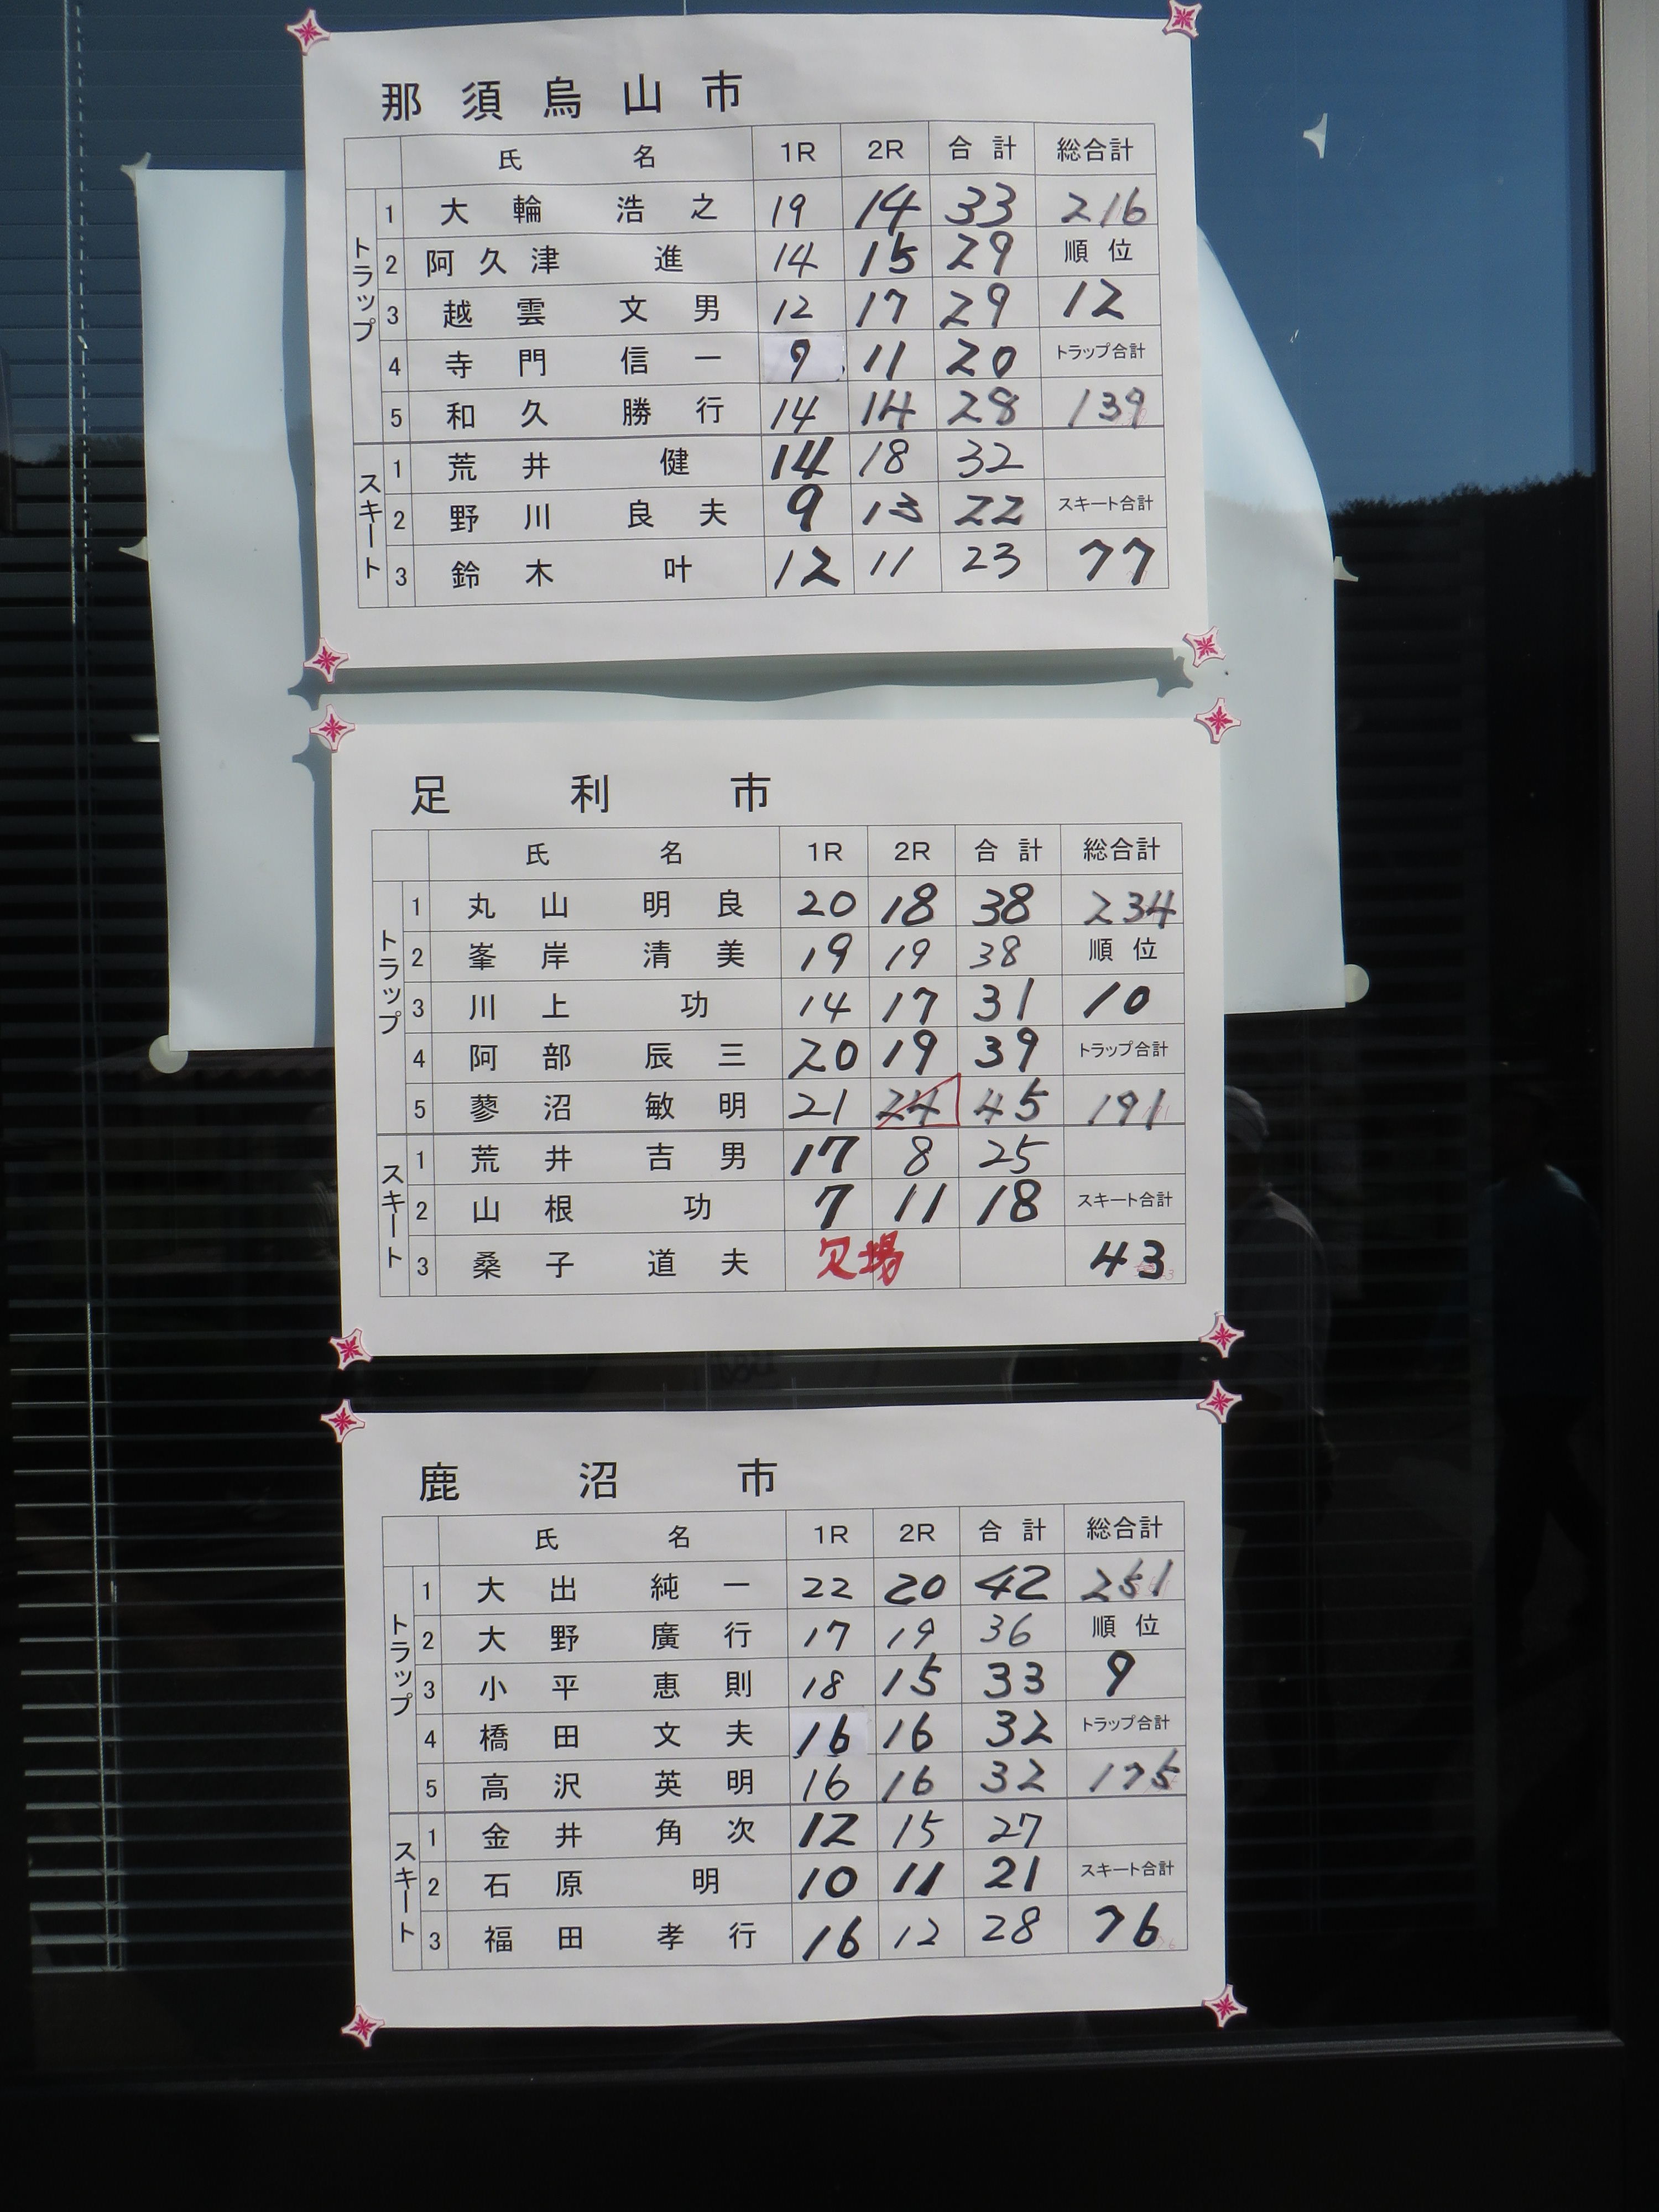 那須烏山市
氏名 1R 2R 合計 総合計
トラップ 1 大輪 浩之 19 14 33 216
2 阿久津 進 14 15 29 順位
3 越雲 文男 12 17 29 12
4 寺門 信一 9 11 20 トラップ合計
5 和久 勝行 14 14 28 139
スキート 1 荒井 健 14 18 32
2 野川 良夫 9 13 22 スキート合計
3 鈴木 叶 12 11 23 77
足利市
氏名 1R 2R 合計 総合計
トラップ 1 丸山 明良 20 18 38 234
2 峯岸 清美 19 19 38 順位
3 川上 功 14 17 31 10
4 阿部 辰三 20 19 39 トラップ合計
5 蓼沼 敏明 21 24 45 191
スキート 1 荒井 吉男 17 8 25
2 山根 功 7 11 18 スキート合計
3 桑子 道夫 欠場 43
鹿沼市
氏名 1R 2R 合計 総合計
トラップ 1 大出 純一 22 20 42 251
2 大野 廣行 17 19 36 順位
3 小平 恵則 18 15 33 9
4 橋田 文夫 16 16 32 トラップ合計
5 高沢 英明 16 16 32 175
スキート 1 金井 角次 12 15 27
2 石原 明 10 11 21 スキート合計
3 福田 孝行 16 12 28 76